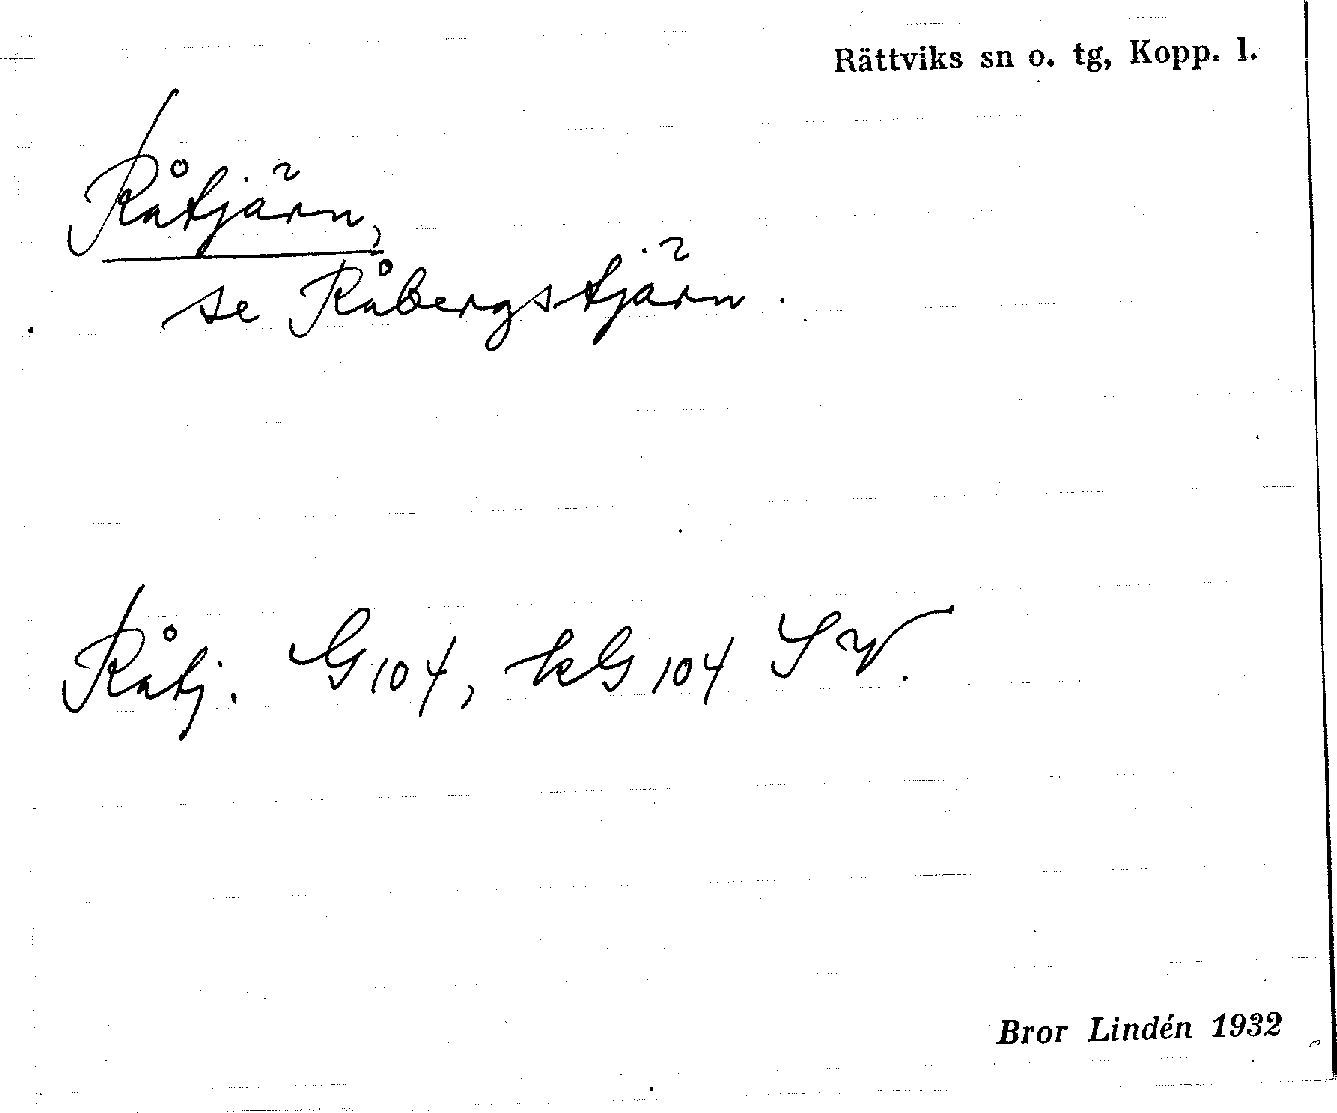 Rättviks sn o. tg, Kopp. l.
Råtjärn,
se Råbergstjärn.
Råtj. G104, kG104 SV.
Bror Lindén 1932